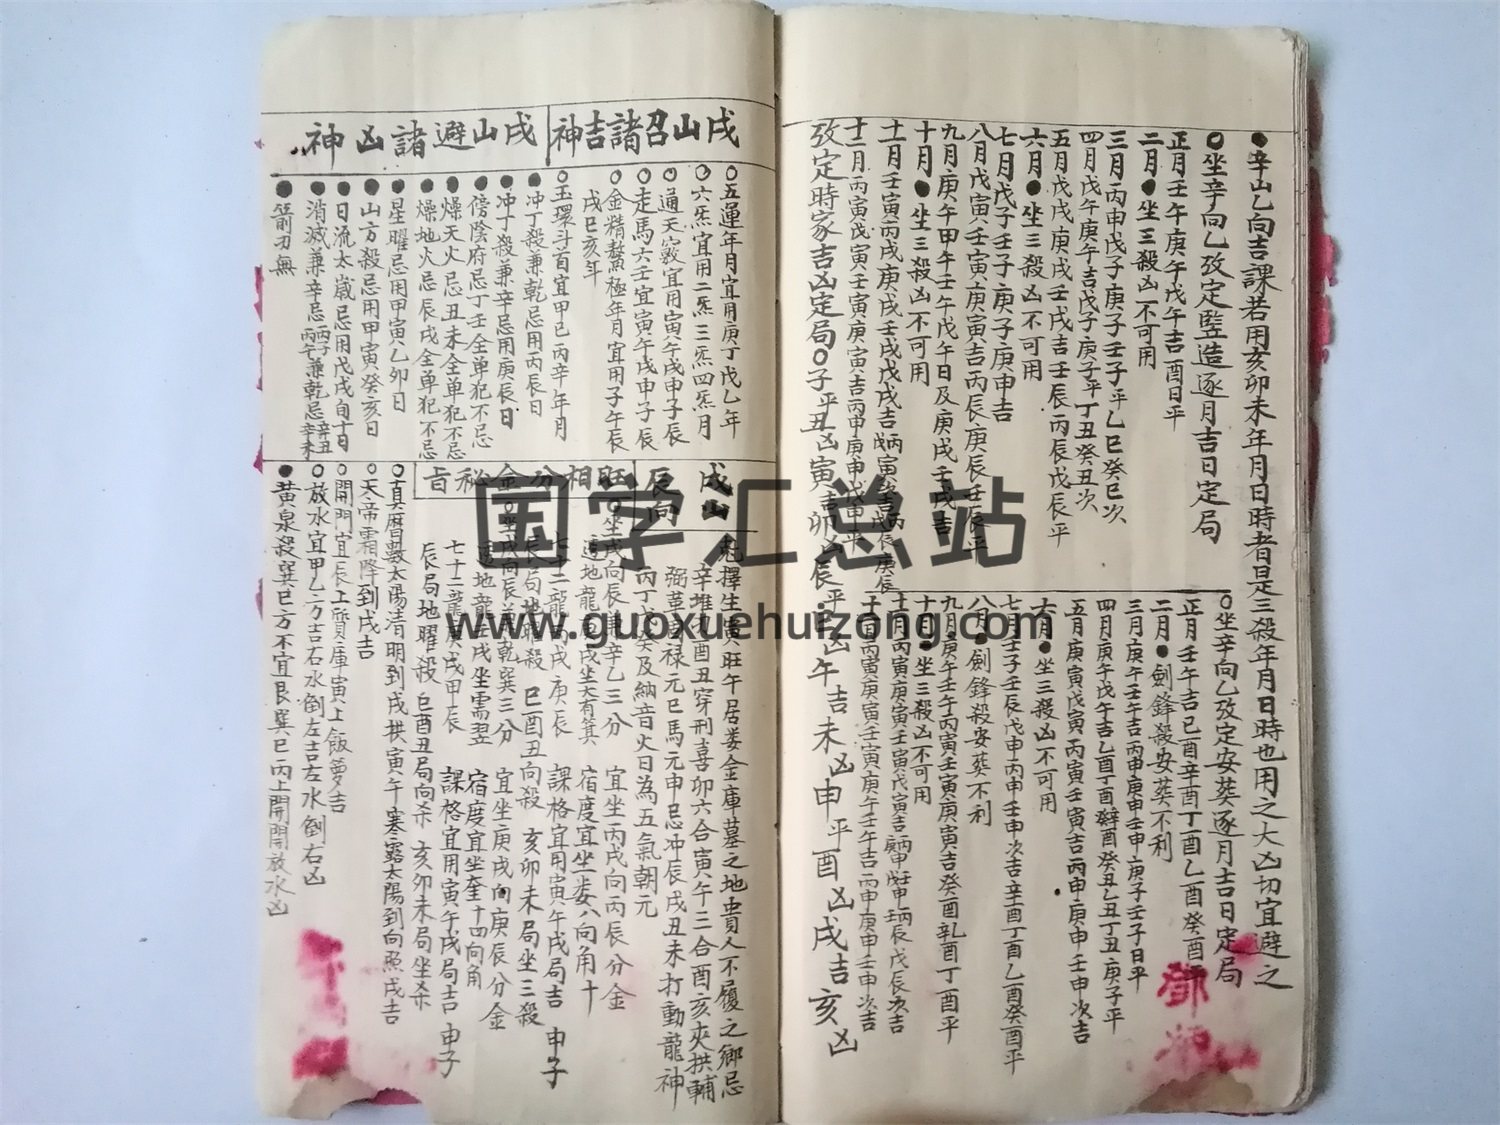 ●辛山乙向吉課若用亥卯未年月日時者是三殺年月日時也用之大凶切宜避之
○坐辛向乙攷定竪造逐月吉日定局
正月壬午庚午戊午吉酉日平
二月●坐三殺凶不可用
三月丙申戊子庚子壬子平乙巳癸巳次
四月戊午庚午吉戊子庚子平丁丑癸丑次
五月戊戌庚戌壬戌吉壬辰丙辰戊辰平
六月●坐三殺凶不可用
七月戊子壬子庚子庚申吉
八月戊寅壬寅庚寅吉丙辰庚辰壬辰平
九月庚午甲午壬午戊午日及庚戌壬戌吉
十月●坐三殺凶不可用
十一月壬寅丙戌庚戌壬戌戊戌吉
十二月丙寅戊寅壬寅庚寅吉丙申庚申戊申平
○坐辛向乙攷定安葬逐月吉日定局
正月壬午吉己酉辛酉丁酉乙酉癸酉平
二月●劍鋒殺安葬不利
三月庚午壬午吉丙申庚申壬申庚子壬子日平
四月庚午戊午吉乙酉丁酉辛酉癸酉癸丑乙丑丁丑庚子平
五月庚寅戊寅丙寅壬寅吉丙申庚申壬申次吉
六月●坐三殺凶不可用
七月壬子壬辰戊申丙申壬申次吉辛酉丁酉乙酉癸酉平
八月●劍鋒殺安葬不利
九月庚午壬午丙寅壬寅庚寅吉癸酉乙酉辛酉丁酉平
十月●坐三殺凶不可用
十一月丙寅庚寅壬寅戊寅吉
十二月丙寅庚寅壬寅庚午壬午吉丙申庚申壬申次吉
攷定時家吉凶定局○子平丑凶寅吉卯凶辰平巳凶午吉未凶申平酉凶戌吉亥凶
戌山召諸吉神
○五運年月宜用庚丁戊乙年
○六炁宜用二炁三炁四炁月
○通天竅宜用寅午戌申子辰
○走馬六壬宜寅午戌申子辰
○金精鰲極年月宜用子午辰
戌巳亥年
○玉環斗首宜甲己丙辛年月
戌山避諸凶神
●冲丁殺兼乾忌用丙辰日
●冲丁殺兼辛忌用庚辰日
●傍陰府忌丁壬全单犯不忌
●燥天火忌丑未全单犯不忌
●燥地火忌辰戌全单犯不忌
●星曜忌用甲寅乙卯日
●山方殺忌用甲寅癸亥日
●日流太歲忌用戊戌旬十日
●消滅兼辛忌丙子丙午兼乾忌辛丑辛未
●箭刃無
戌山
辰向
兎擇生貴旺午居娄金庫墓之地貴人不履之鄉忌
辛堆刃酉丑穿刑喜卯六合寅午三合酉亥夾拱輔
弼革曲禄元巳馬元申忌冲辰戌丑未打動龍神
丙丁戊癸及納音火日為五氣朝元
旺相分金秘旨
○坐戌向辰兼辛乙三分 宜坐丙戌向丙辰分金
透地龍庚戌坐木有箕 宿度宜坐娄八向角十
七十二龍丙戌庚辰 課格宜用寅午戌局吉 申子
辰局地曜殺 巳酉丑向殺 亥卯未局坐三殺
○坐戌向辰兼乾巽三分 宜坐庚戌向庚辰分金
透地龍壬戌坐需翌 宿度宜坐奎十四向角
七十二龍庚戌甲辰 課格宜用寅午戌局吉 申子
辰局地曜殺 巳酉丑局向杀 亥卯未局坐杀
○真曆數太陽清明到戌拱寅午寒露太陽到向照戌吉
○天帝霜降到戌吉
○開門宜辰上質庫寅上飯籮吉
○放水宜甲乙方吉右水倒左吉左水倒右凶
●黃泉殺巽巳方不宜艮巽巳丙上開門放水凶
国学汇总站
www.guoxuehuizong.com